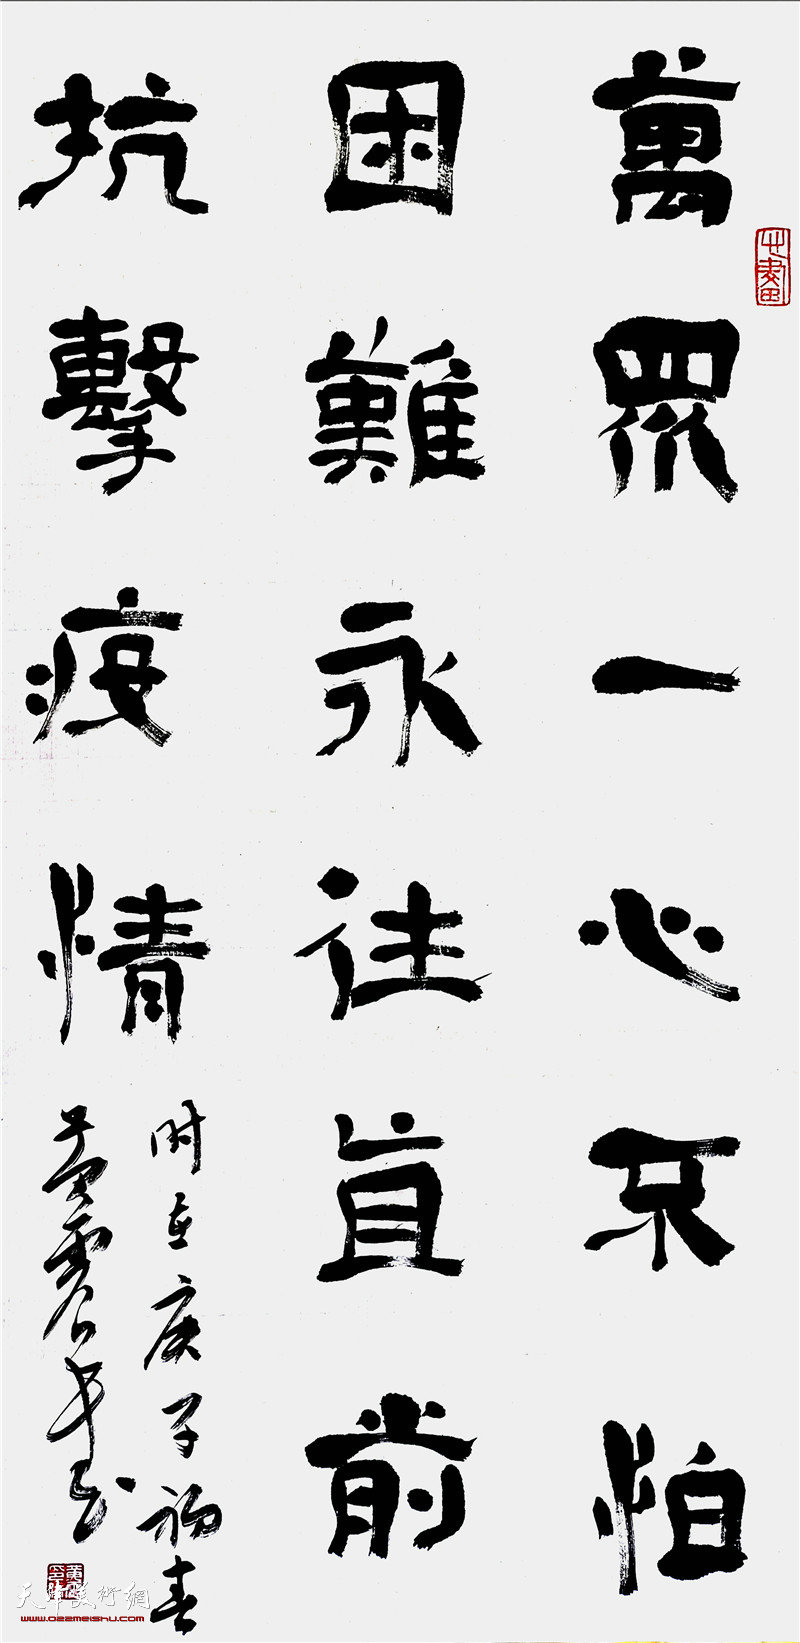 萬眾一心不怕
困難永往直前
抗擊疫情
时在庚子初春
天津美術網
www.022meishu.com